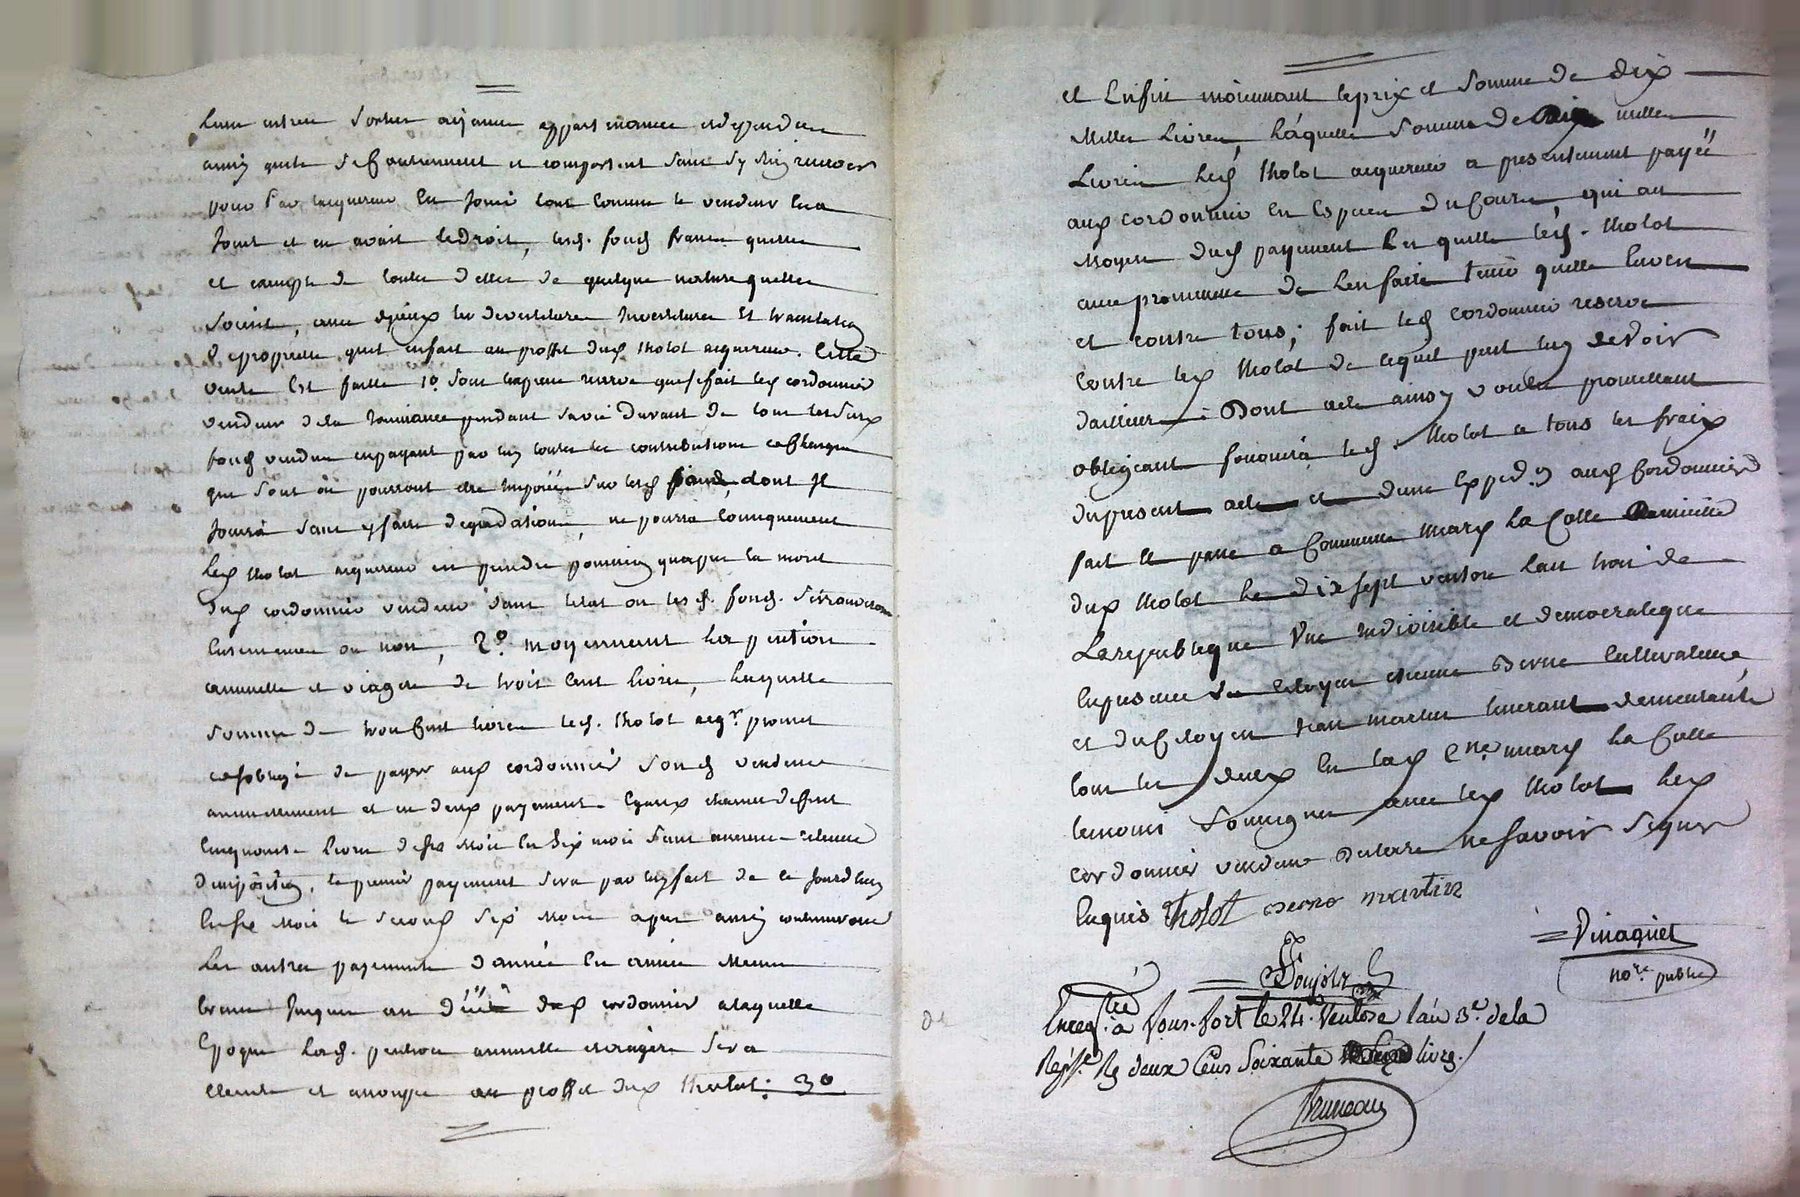 leurs entrees sorties aisances appartenances et dependences
ainsy quils se confrontent et comportent sans sy rien reserver
pour par lacquereur en jouir tout comme le vendeur en a
jouit et en avait le droit, lesd. fonds francs quittes
et exempts de toutes dettes de quelque nature quelles
soient, avec
de propriette quil en fait au proffit dud Tholot acquereur. Cette
vente est faitte 1º sous lexpresse reserve que se fait led cordonnier
vendeur de la jouissance pendant sa vie durant de tous lesdits
fonds vendus en payant par luy toutes les contributions et charges
que sont ou pourront etre imposées sur lesd fonds, dont il
jouira sans y faire degradation, ne pourra consequement
led Tholot acquereur en prendre possession quapres la mort
dud cordonnier vendeur dans letat ou lesd. fonds. se trouveront
ensemencés ou non, 2º. moyennant la pention
annuelle et viagere de trois cent livres, laquelle
somme de trois cent livres led. Tholot acqr. promet
et soblige de payer aud cordonnier vendeur
annuellement et en deux payements egaux chacun de cent
cinquante livres de six mois en six mois sans aucune retenue
dimposition, le premier payement sera par luy fait de ce jourdhuy
en six mois le second six mois apres ainsy continuront
les autres payements dannée en année meme
terme jusques au décès dud cordonnier a laquelle
epoque lad. pention annuelle et viagere sera
eteinte et amortie au proffit dud Tholot. 3º
et enfin moiennant le prix et somme de dix
milles livres, laquelle somme de dix milles
livres led Tholot acquereur a presentement payée
aud cordonnier en especes du cours qui au
moyen dud payement len quitte led. Tholot
avec promesse de len faire tenir quitte envers
et contre tous; fait led cordonnier reserve
contre led Tholot de ce quil peut luy devoir
dailleurs. Dont acte ainsy voulu promettant
obligeant fournira led. Tholot a tous les fraix
du present acte et dune exped.on aud Cordonnier
fait et passé a Commune Mars la Colle Domicille
dud Tholot le dix sept ventose lan trois de
La republique une indivisible et democratique
en presence du citoyen etienne Berne cultivateur
et du Citoyen Jean martin tisserant demeurants
tous les deux en lad Cne. mars la Colle
temoins soussignés avec led Tholot led
cordonnier vendeur declare ne savoir signer
enquis Tholot Berne martin
Vinaquet
nore. public
Enregtré. à Rous-fort le 24. Ventose l'an 3e. de la
Repse. Rs deux Cens Soixante livres.
Bruneau